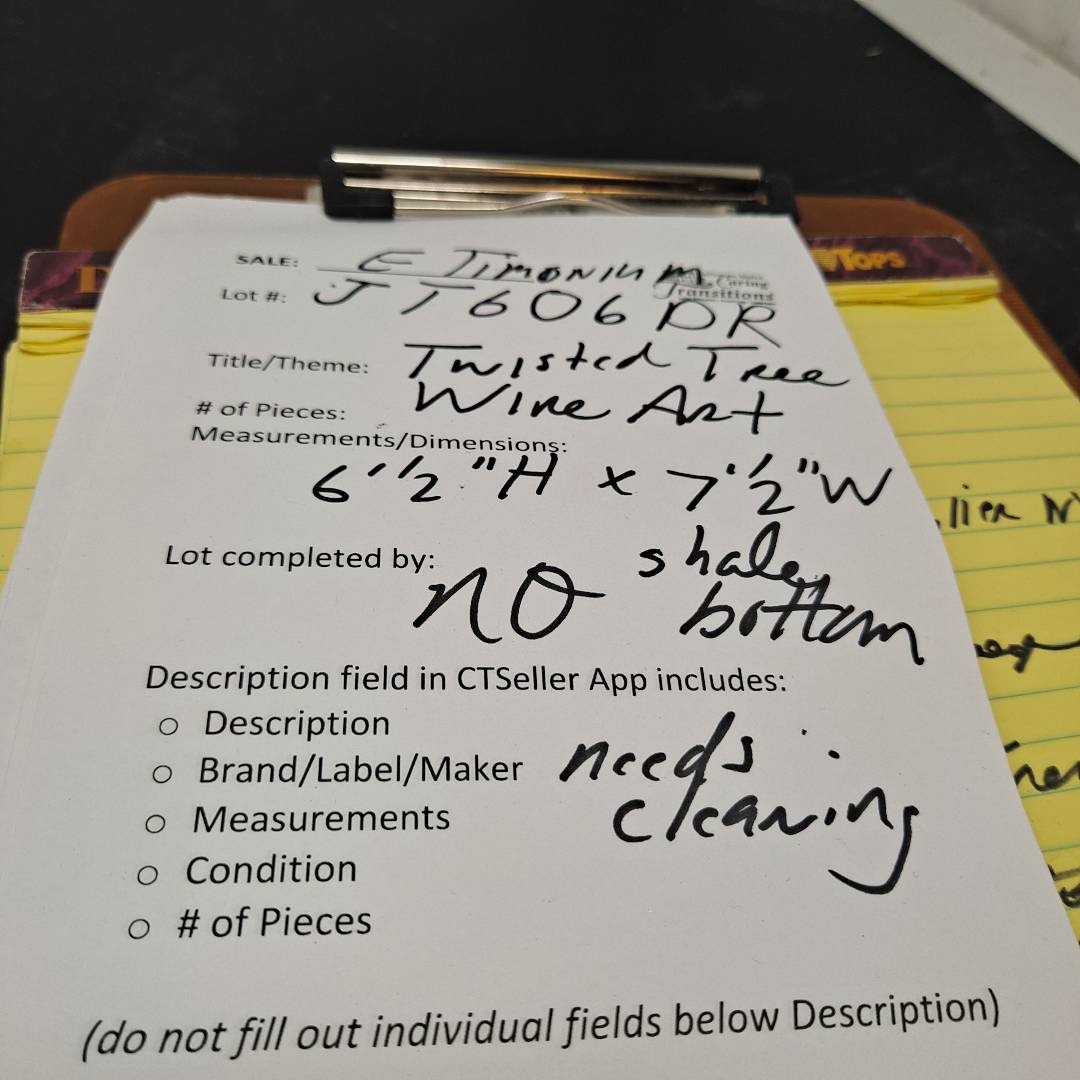 TOPS
SALE: E Timonium
Caring Transitions
Lot #: JT606 DR
Title/Theme: Twisted Tree
# of Pieces: Wire Art
Measurements/Dimensions:
6 1/2 "H x 7 1/2 "W
Lot completed by: no shale
bottom
Description field in CTSeller App includes:
o Description
o Brand/Label/Maker needs
o Measurements cleaning
o Condition
o # of Pieces
(do not fill out individual fields below Description)